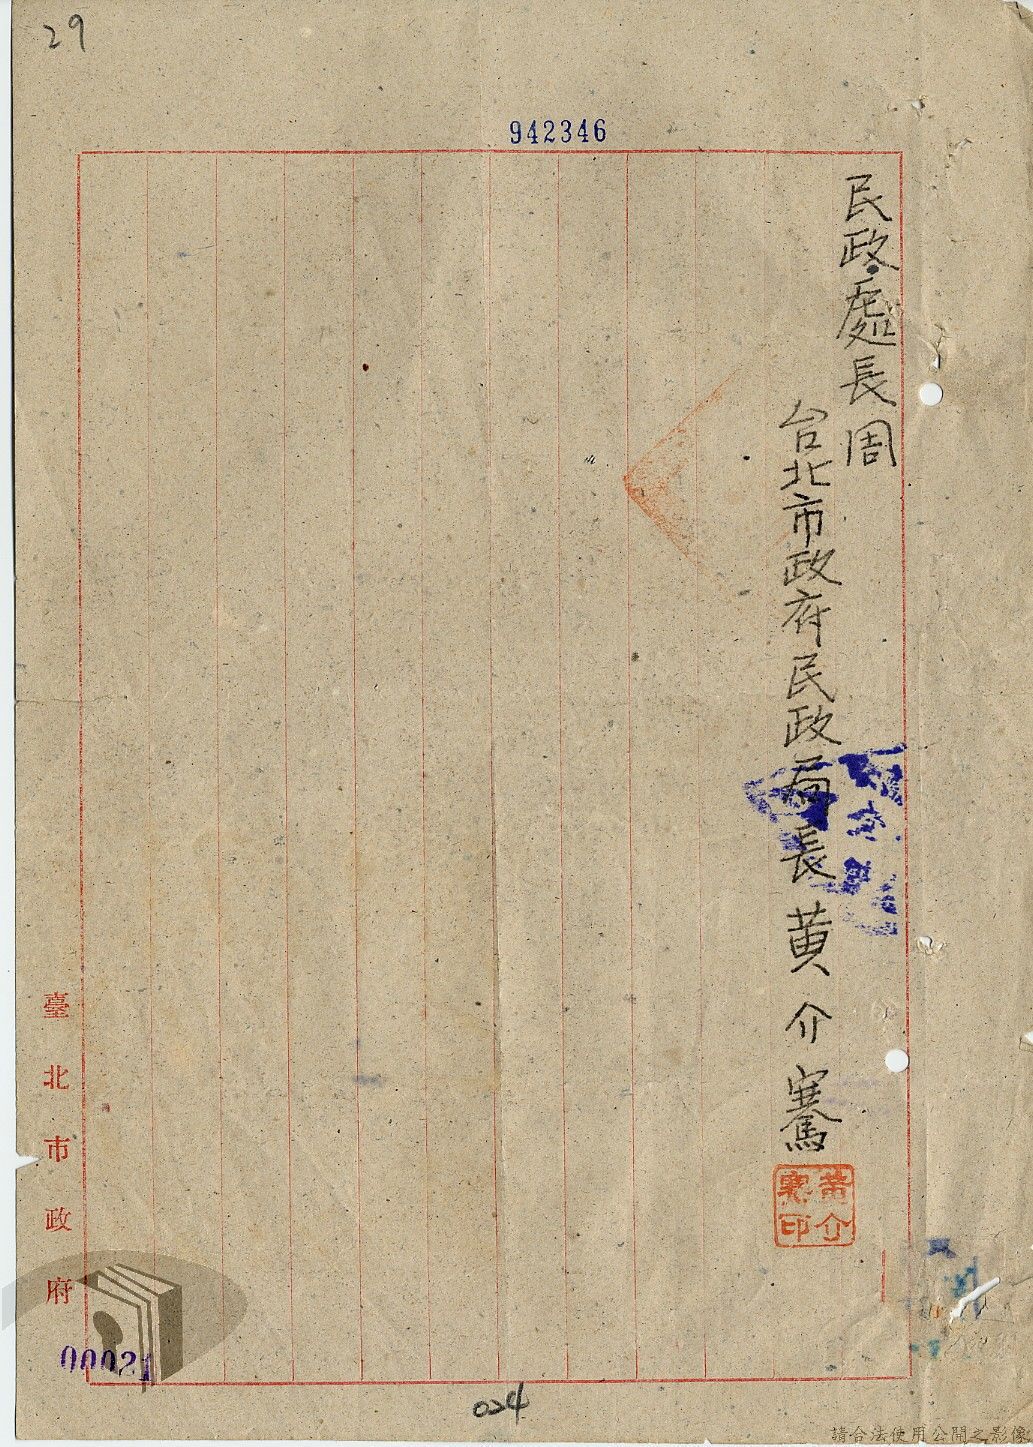 29
942346
民政處長周
台北市政府民政局長黃介騫
黃介騫印
臺北市政府
00021
024
請合法使用公開之影像